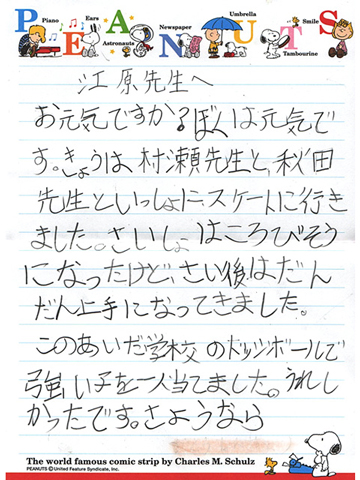 Piano
Ears
Astronauts
Newspaper
Umbrella
Smile
Tambourine
PEANUTS
江原先生へ
お元気ですか?ぼくは元気で
す。きょうは、村瀬先生と、秋田
先生といっしょに、スケートに行き
ました。さいしょはころびそう
になったけど、さい後はだん
だん上手になってきました。
このあいだ学校のドッジボールで
強い子を一人当てました。うれし
かったです。さようなら
The world famous comic strip by Charles M. Schulz
PEANUTS © United Feature Syndicate, Inc.